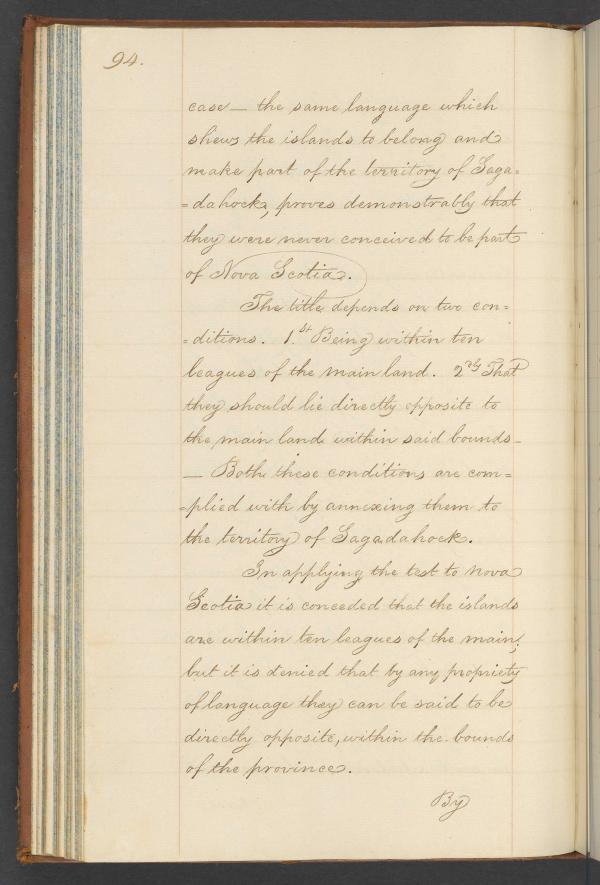 94.
case — the same language which
shews the islands to belong and
make part of the territory of Saga=
=dahock, proves demonstrably that
they were never conceived to be part
of Nova Scotia.
The title depends on two con=
=ditions. 1.st Being within ten
leagues of the main land. 2ndly That
they should lie directly opposite to
the main land within said bounds—
— Both these conditions are com=
=plied with by annexing them to
the territory of Sagadahock.
In applying the test to Nova
Scotia it is conceded that the islands
are within ten leagues of the main;
but it is denied that by any propriety
of language they can be said to be
directly opposite, within the bounds
of the province.
By